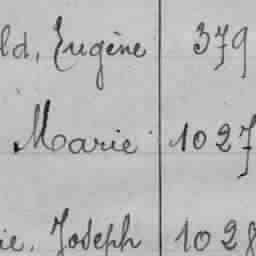 ld, Eugène 379
Marie 1027
ie. Joseph 1028